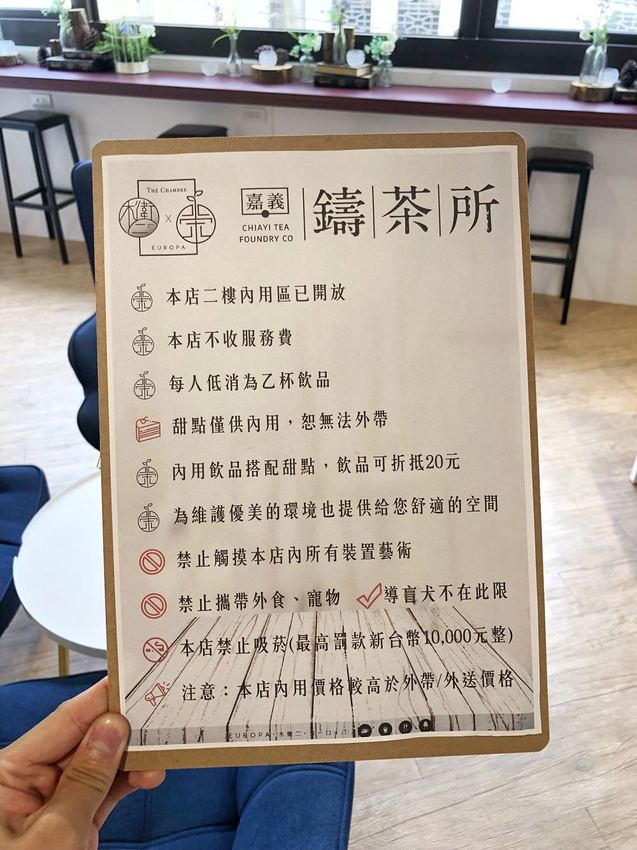 THÉ CHAMBRE
EUROPA
嘉義
CHIAYI TEA
FOUNDRY CO
鑄茶所
本店二樓內用區已開放
本店不收服務費
每人低消為乙杯飲品
甜點僅供內用，恕無法外帶
內用飲品搭配甜點，飲品可折抵20元
為維護優美的環境也提供給您舒適的空間
禁止觸摸本店內所有裝置藝術
禁止攜帶外食、寵物 導盲犬不在此限
本店禁止吸菸(最高罰款新台幣10,000元整)
注意：本店內用價格較高於外帶/外送價格
EUROPA